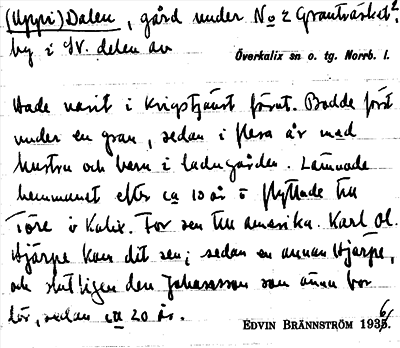 (Uppi) Dalen, gård under No 2 Granträsket?
by i SV. delen av
Överkalix sn o. tg. Norrb. l.
Hade varit i krigstjänst förut. Bodde först
under en gran, sedan i flera år med
hustru och barn i ladugården. Lämnade
hemmanet efter ca 10 år o flyttade till
Töre i Kalix. For sen till Amerika. Karl Ol.
Hjärpe kom dit sen; sedan en annan Hjärpe,
och slutligen den Johansson som ännu bor
där, sedan ca 20 år.
EDVIN BRÄNNSTRÖM 1936.